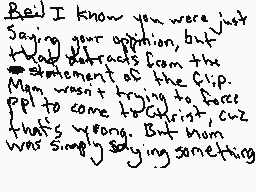 Rei! I know you were just
saying your opphion, but
that detracts from the
statement of the clip.
Mom wasn't trying to force
ppl to come to Christ, cuz
that's wrong. But Mom
was simply saying something